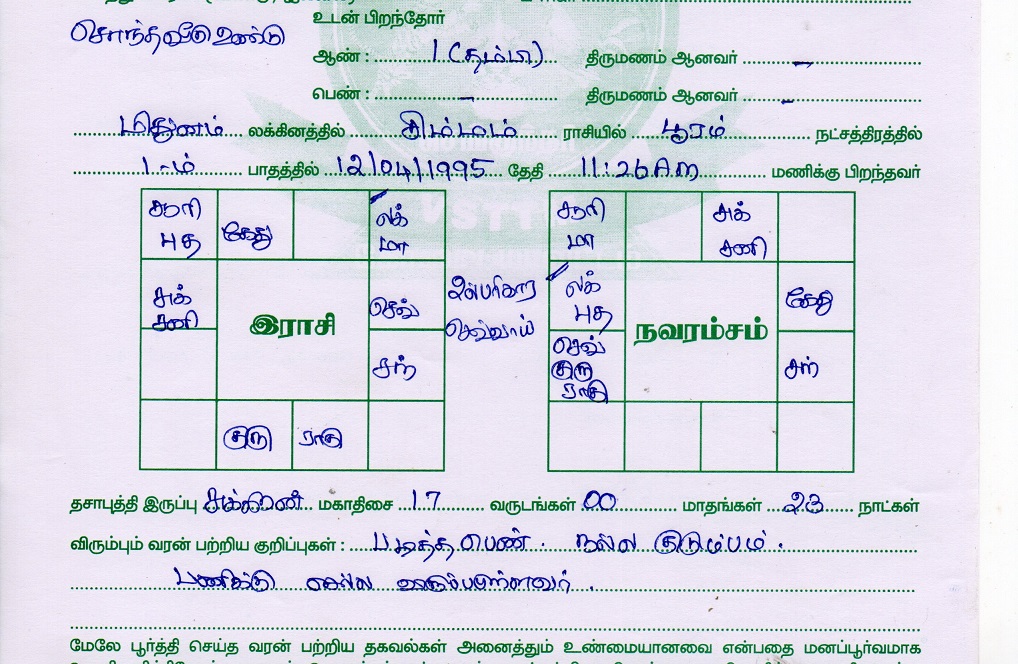 உடன் பிறந்தோர்
சொந்தவீடு உண்டு
ஆண் : 1 (தம்பி) திருமணம் ஆனவர் –
பெண் : – திருமணம் ஆனவர் –
மிதுனம் லக்கினத்தில் சிம்மம் ராசியில் பூரம் நட்சத்திரத்தில்
1-ம் பாதத்தில் 12/04/1995 தேதி 11:26 A.m மணிக்கு பிறந்தவர்
சூரி புத கேது லக் மா
சுக் சனி இராசி செவ்
சந்
குரு ராகு
உஸ்பரிகார
செவ்வாய்
சூரி மா சுக் சனி
லக் புத நவரம்சம் கேது
செவ் குரு ராகு சந்
தசாபுத்தி இருப்பு சுக்கிரன் மகாதிசை 17 வருடங்கள் 00 மாதங்கள் 23 நாட்கள்
விரும்பும் வரன் பற்றிய குறிப்புகள் : படித்த பெண். நல்ல குடும்பம்.
பணிக்கு செல்ல விருப்பமுள்ளவர்.
மேலே பூர்த்தி செய்த வரன் பற்றிய தகவல்கள் அனைத்தும் உண்மையானவை என்பதை மனப்பூர்வமாக